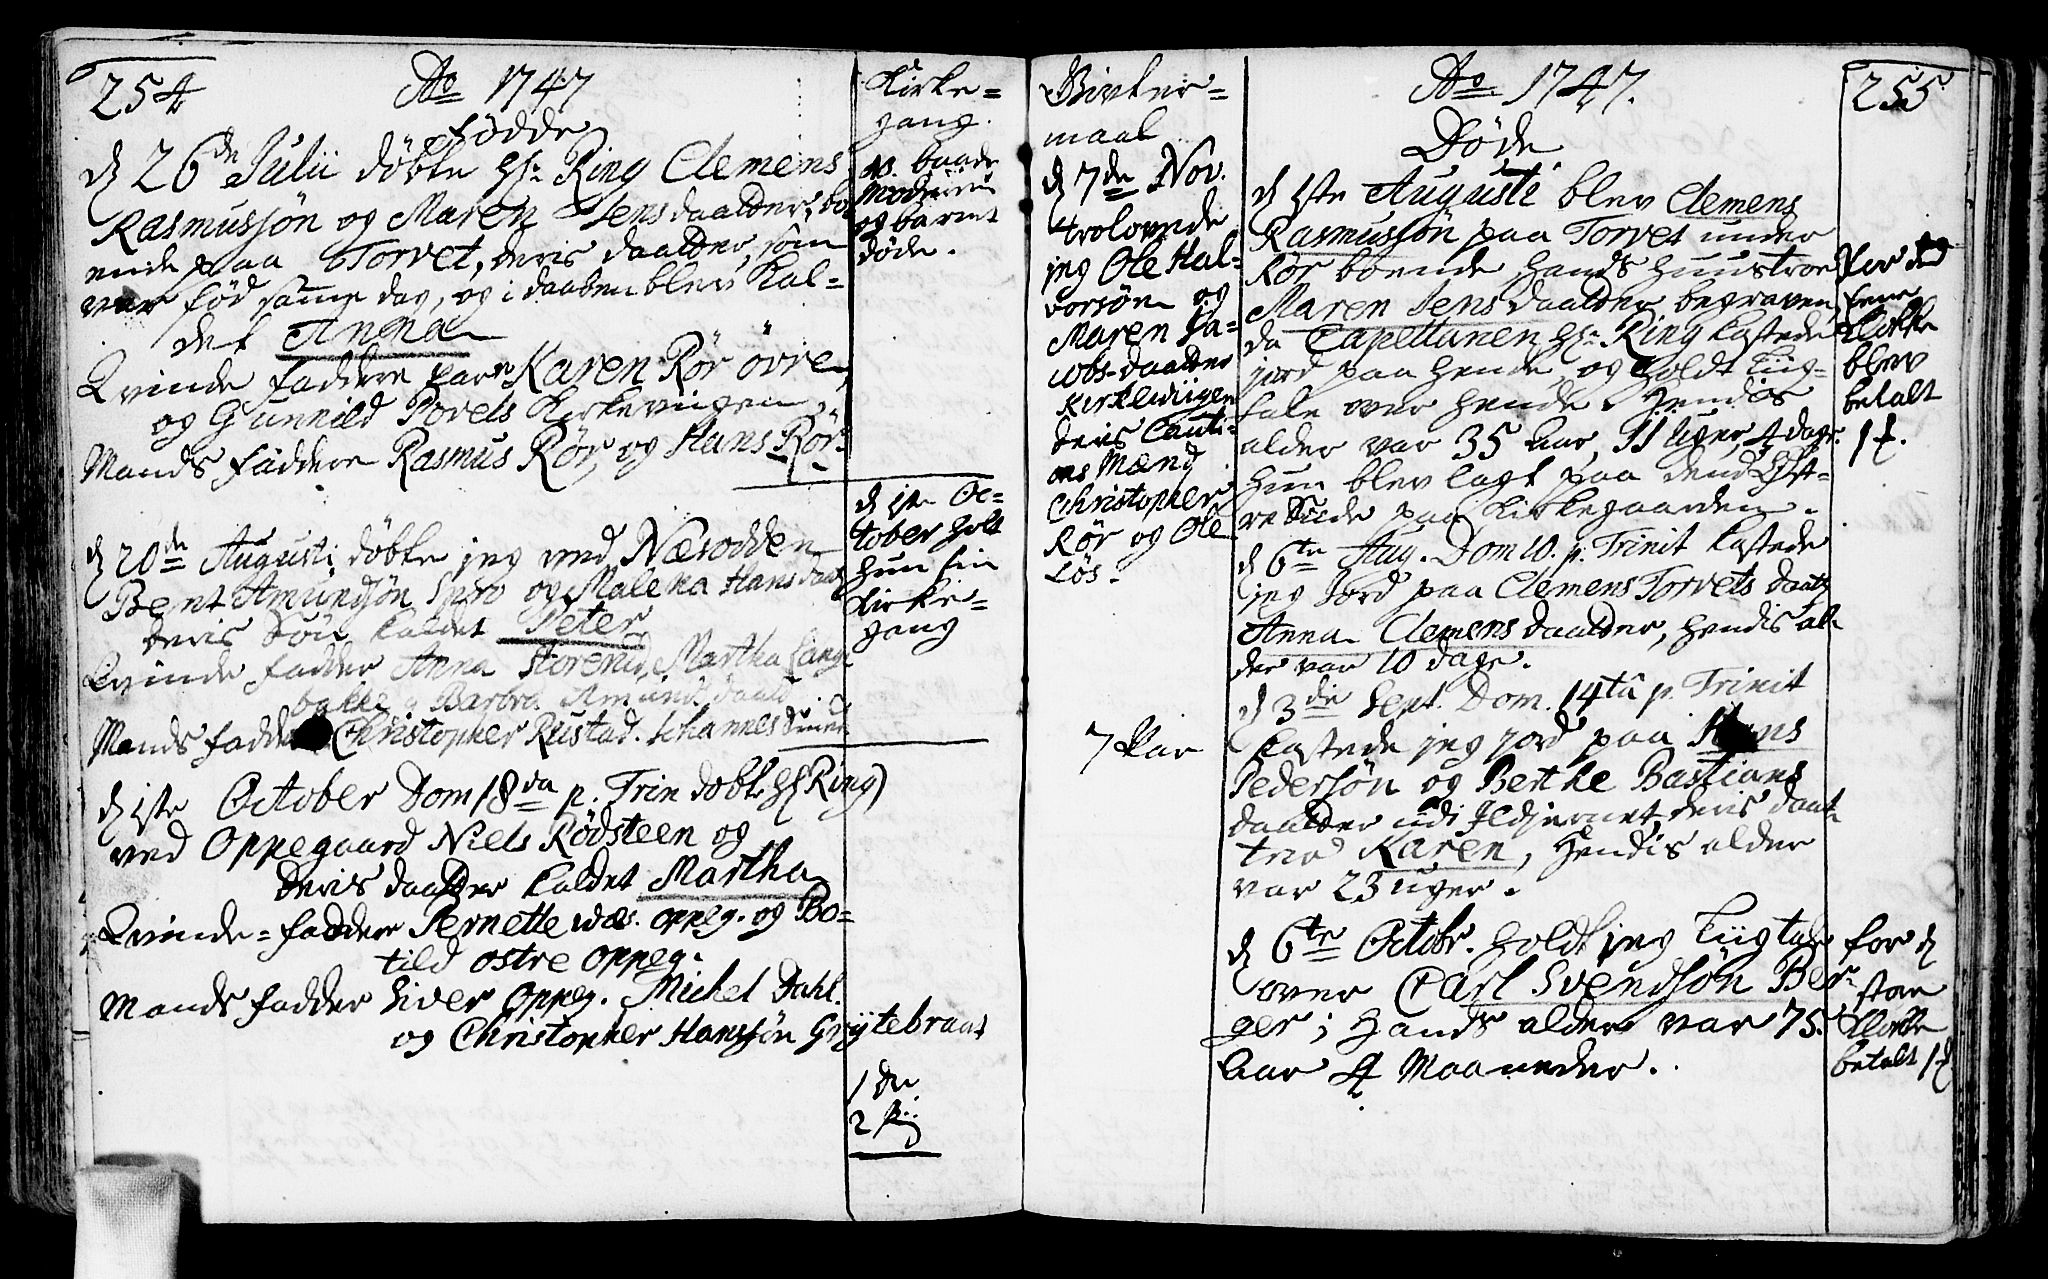 254
Ao 1747
Fødde
d 26de Julii døbte Hr. Ring Clemens
Rasmussøn og Maren Jens daatters, bo
ende paa Torvet, deris daatter, som
var fød samme dag, og i daaben blev kal-
det Anna
Qvinde faddere vare Karen Rør øvre,
og Gunnild Povels Kirkeviigen,
Mands faddere Rasmus Rør, og Hans Rør.
d 20de Augusti døbte jeg ved Næsodden
Bent Amundsøn Spro og Malena Hans daat
deris Søn kaldet Peter
Qvinde fadder Anna Storerud, Martha Lang-
bakke og Barbra Amunds daatt
Mands fadder Christopher Rustad. Johannes Smed
d 1ste October Dom 18va p. Trin døbte Hr Ring
ved Oppegaard Niels Rødsteen og
deris daatter kaldet Martha
Qvinde-faddere Pernette wæs. oppeg. og Bo-
tild ostre oppeg.
Mands fadder Siver Oppeg. Michel Dahl.
og Christopher Hanssøn Grytebraat
Kirke-
gang.
NB. baade
Moderen
og barnet
døde.
d 1ste Oc-
tober holt
hun sin
Kirke-
gang
1 dr
2 pig
Givter-
maal
d 7de Nov.
trolovede
jeg Ole Hal-
vorsøn og
Maren Ja-
cobs-daatter
Kirkeviigen
deris Cauti-
ons Mænd
Christopher
Rør og Ole
Løs.
7 Par
Ao 1747.
Døde
d 1ste Augusti blev Clemens
Rasmussøn paa Torvet under
Rør boende hands huustroe
Maren Jens daatter begraven
da Capellanen Hr. Ring kastede
jord paa hende, og holdt liig-
tale over hende. Hendis
alder var 35 aar, 11 uger, 4 dage.
Hun blev lagt paa dend Øst-
re Siide paa Kirkegaarden.
d 6te Aug. Dom 10. p. Trinit kastede
jeg Jord paa Clemens Torvets daatt
Anna Clemens daatter, hendis al-
der var 10 dage.
d 3die Sept. Dom. 14ta p. Trinit
kastede jeg jord paa Hans
Pedersøn og Berthe Bastians
daatter udi Ildjernet deris daat-
ter Karen, Hendis alder
var 23 uger.
d 6te Octobr. holdt jeg liigtale
over Carl Svendsøn Ber-
ger; Hands alder var 75
Aar 4 Maaneder.
255
for dend
ene
Klokke
blev
betalt
1 f.
for d
store
Klokke
betalt 1 f